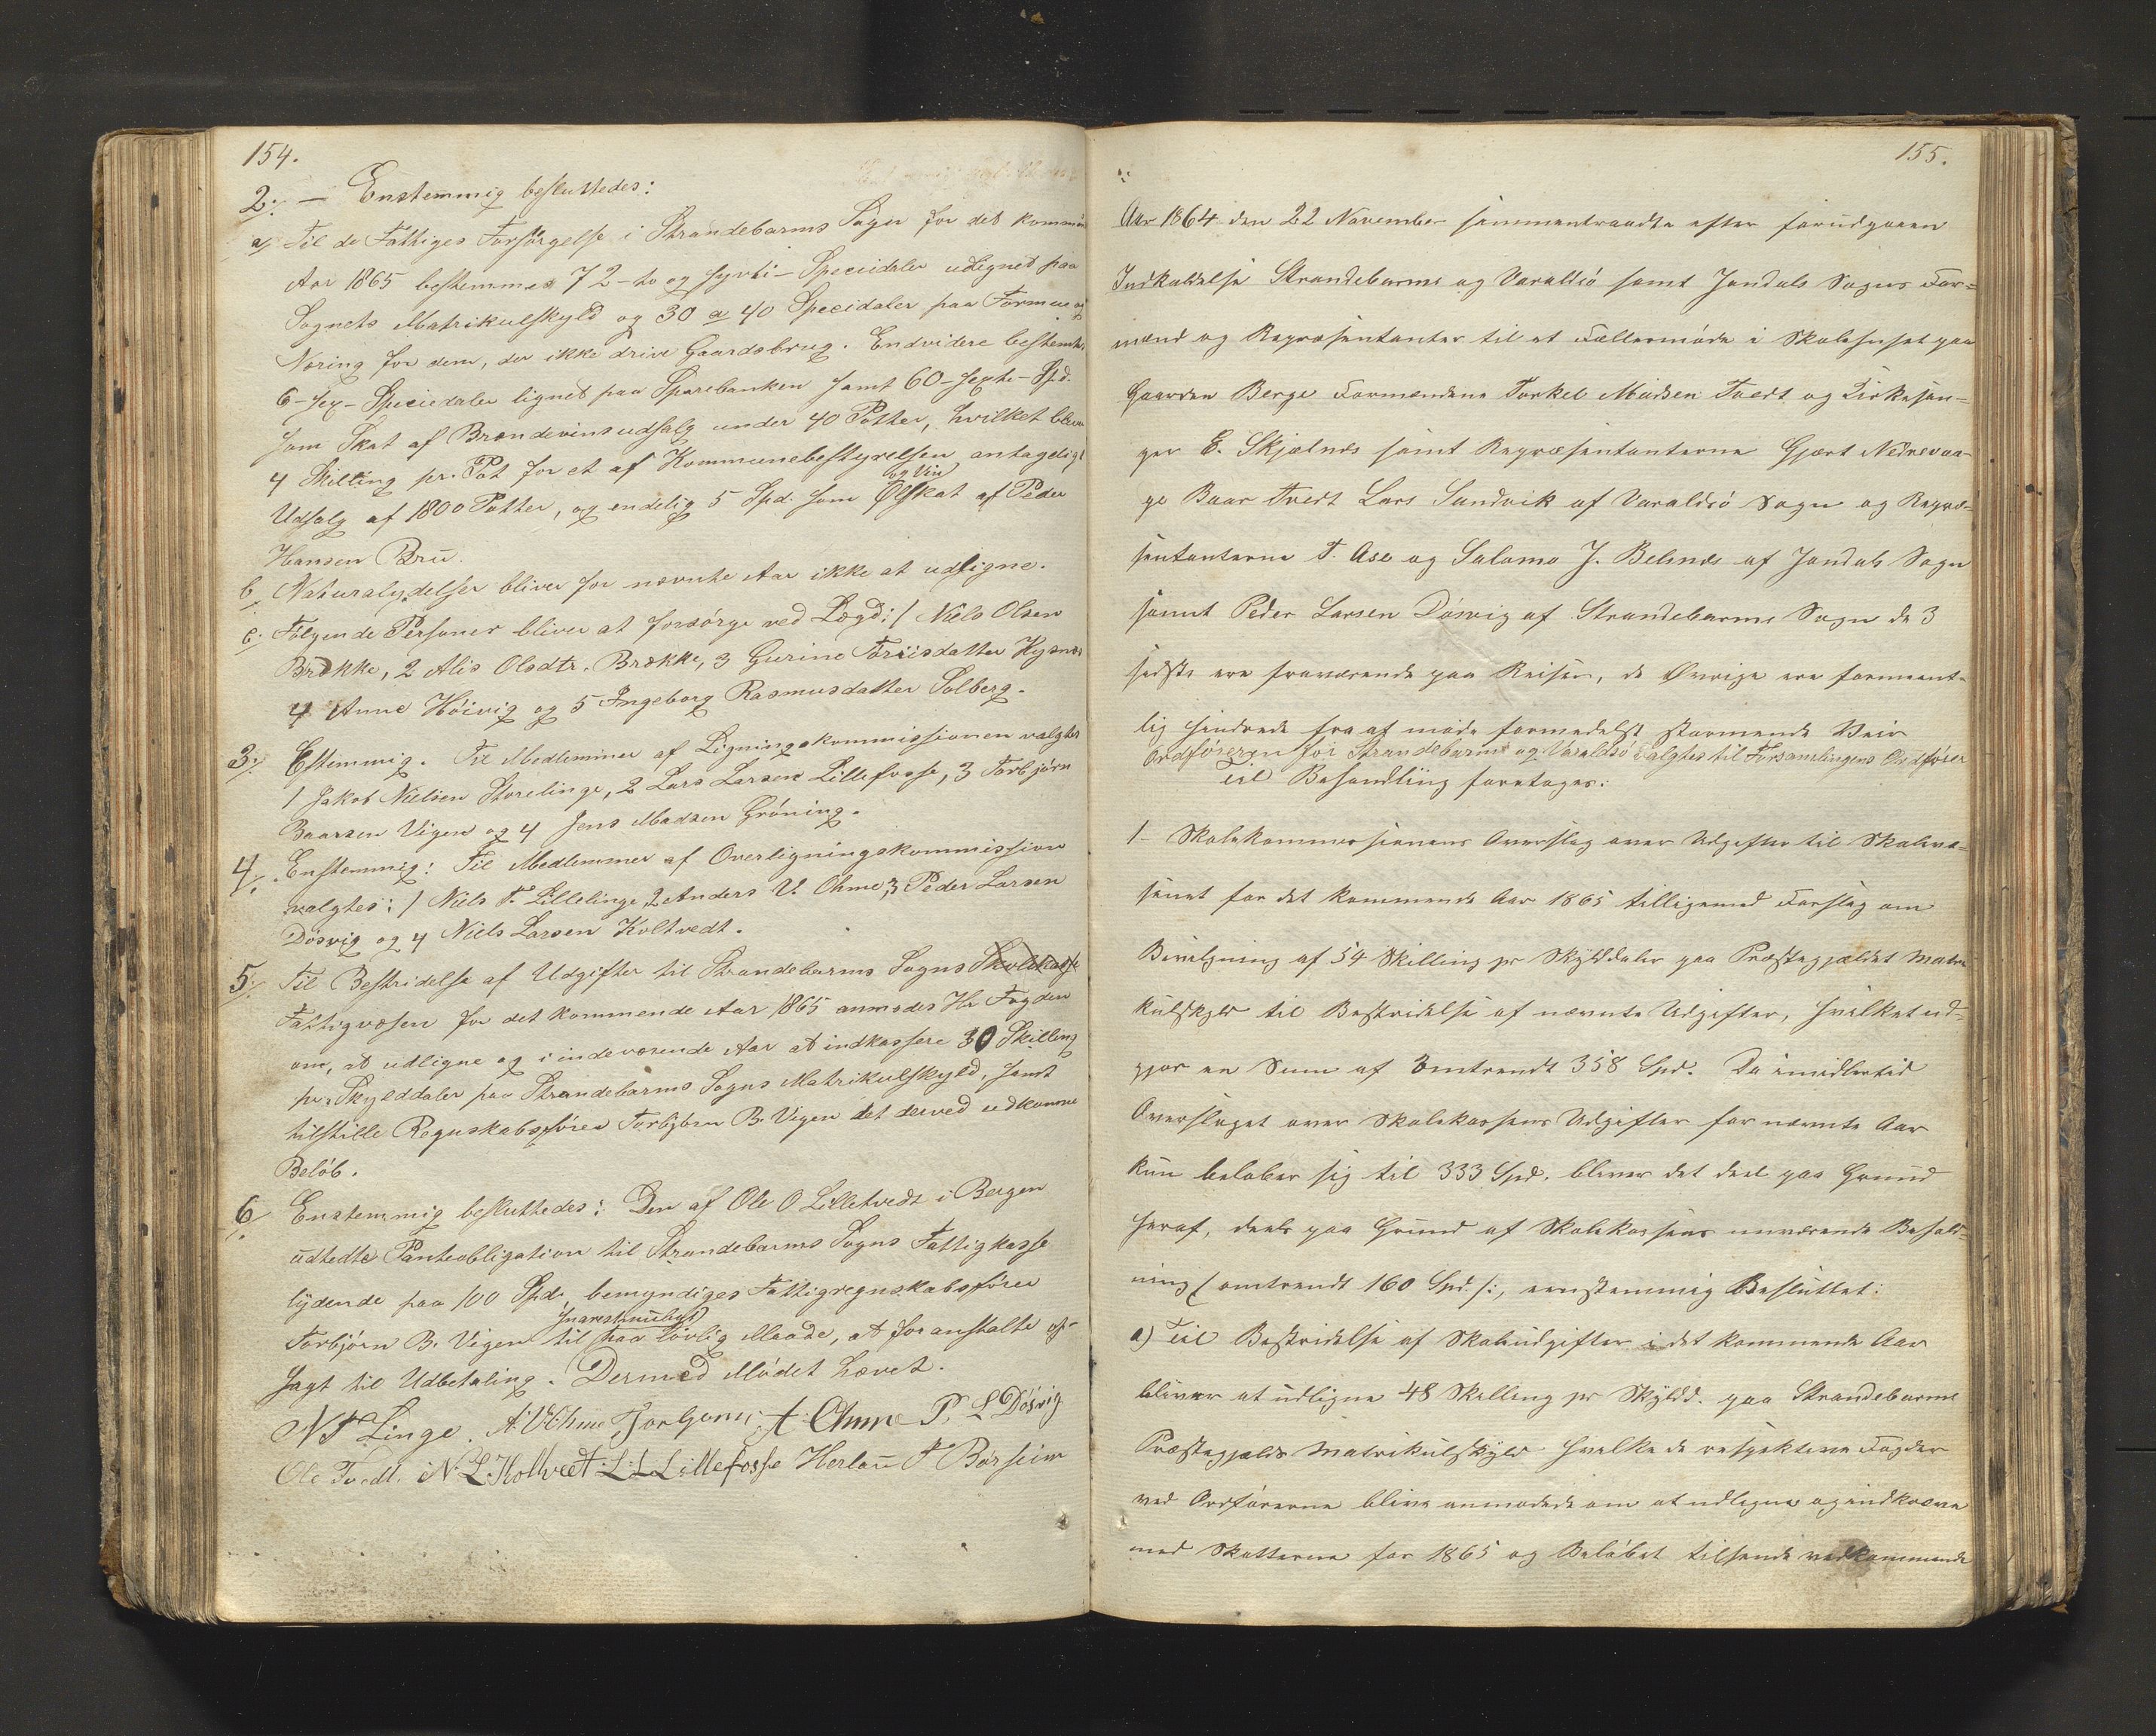 154.
2./. — Enstemmig besluttedes:
a/ Til de Fattiges Forsörgelse i Strandebarms Sogn for det kommen
Aar 1865 bestemmes 72 - to og syvti - Speciedaler udlignet paa
Sognets Matrikulskyld og 30 a 40 Specidaler paa Formue og
Næring for dem, der ikke drive Gaardsbrug. Endvidere bestemtes
6 - sex - Speciedaler lignet paa Sparebanken samt 60 - sexti - Spd.
som Skat af Brændevinsudsalg under 40 Potter, hvilket bliver
4 Skilling pr. Pot for et af Kommunebestyrelsen antageligt
Udsalg af 1800 Potter, og endelig 5 Spd. som Øl og Vin skat af Peder
Hansen Bru.
b/ Naturalydelser bliver for nævnte Aar ikke at udligne.
c. Fölgende Personer bliver at forsörge ved Lægd: 1 Niels Olsen
Brække, 2 Alis Olsdtr. Brække, 3 Gurine Toriisdatter Hysnes
4 Anne Höivig og 5 Ingeborg Rasmusdatter Solberg.
3./. Estemmig. Til Medlemmer af Ligningskommissionen valgtes
1 Jakob Nielsen Storelinge, 2 Lars Larsen Lillefosse, 3 Torbjörn
Baarsen Vigen og 4 Jens Madsen Gröning.
4/. Enstemmig: Til Medlemmer af Overligningskommission
valgtes: 1 Niels T. Lillelinge, 2 Anders V. Ohme, 3 Peder Larsen
Dösvig og 4 Niels Larsen Koltvedt.
5/. Til Bestridelse af Udgifter til Strandebarms Sogns Skolekasse
Fattigvæsen for det kommende Aar 1865 anmodes Hr. Fogden
om, at udligne og i indeværende Aar at indkassere 30 Skilling
pr. Skylddaler paa Strandebarms Sogns Matrikulskyld, samt
tilstille Regnskabsförer Torbjörn B. Vigen det derved udkomne
Belöb.
6/. Enstemmig besluttedes: Den af Ole O Lilletvedt i Bergen
udstedte Panteobligation til Strandebarms Sogns Fattigkasse
lydende paa 100 Spd. bemyndiges Fattigregnskabsförer
Torbjörn B. Vigen til snarestmuligst paa lövlig Maade, at foranstalte op-
sagt til Udbetaling. Dermed Mödet hævet.
N T Linge. A. V Ohme A. Ohme P. L Dösvig
Ole Tvedt. N. L. Koltvedt. L. L Lillefosse Herlau P Börseim
155.
Aar 1864 den 22 November sammentraadte efter forudgaaen
Indkaldelse Strandebarms og Varaldsö samt Jondals Sogns For-
mænd og Repræsentanter til et Fællesmöde i Skolehuset paa
Gaarden Berge Formændene Torkel Madsen Tvedt og Kirkesan-
ger E. Skjelnes samt Repræsentanterne Gjært Nedrevaa-
ge Baar Tvedt Lars Sandvik af Varaldsö Sogn og Repræ-
sentanterne T. Ase og Salamo J. Belsnes af Jondals Sogn
samt Peder Larsen Dösvig af Strandebarms Sogn de 3
sidste ere fraværende paa Reiser, de Øvrige ere forment-
lig hindrede fra at möde formedelst stormende Veir
Ordföreren for Strandebarms og Varaldsö valgtes til Forsamlingens Ordförer
Til Behandling foretoges:
1 - Skolekommissionens Overslag over Udgifter til Skolevæ-
senet for det kommende Aar 1865 tilligemed Forslag om
Bevilgning af 54 Skilling pr Skylddaler paa Præstegjældet Matri
kulskyld til Bestridelse af nævnte Udgifter, hvilket ud-
gjör en Sum af omtrendt 358 Spd. Da imidlertid
Overslaget over Skolekassens Udgifter for nævnte Aar
kun belöber sig til 333 Spd. bliver det deel paa Grund
heraf, deels paa Grund af Skolekassens nuværende Behold-
ning (omtrendt 160 Spd. /:, eenstemmig Besluttet:
a) Til Bestridelse af Skoleudgifter i det kommende Aar
bliver at udligne 48 Skilling pr Skyldd. paa Strandebarms
Præstegjælds Matrikulskyld hvilke de respektive Fogder
ved Ordförerne blive anmodede om at udligne og indkræve
med Skatterne for 1865 og Belöbet tilsende vedkommende